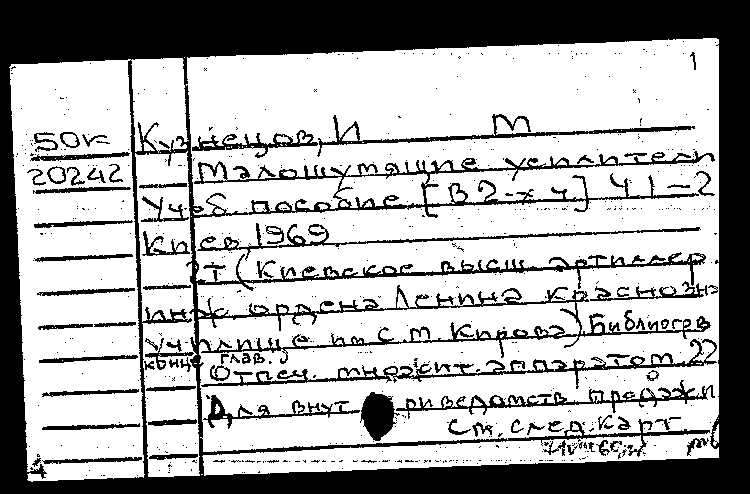 1
50к Кузнецов, И М
20242 Малошумящие усилители
Учеб. пособие [В 2-х ч] Ч 1-2
Киев, 1969
2т (Киевское высш. артиллер.
инж. ордена Ленина Краснозна
училище им С. М. Кирова) Библиогр в
конце глав.
Отпеч. множит. аппаратом 22
Для внутриведомств продажи
См. след. карт.
4